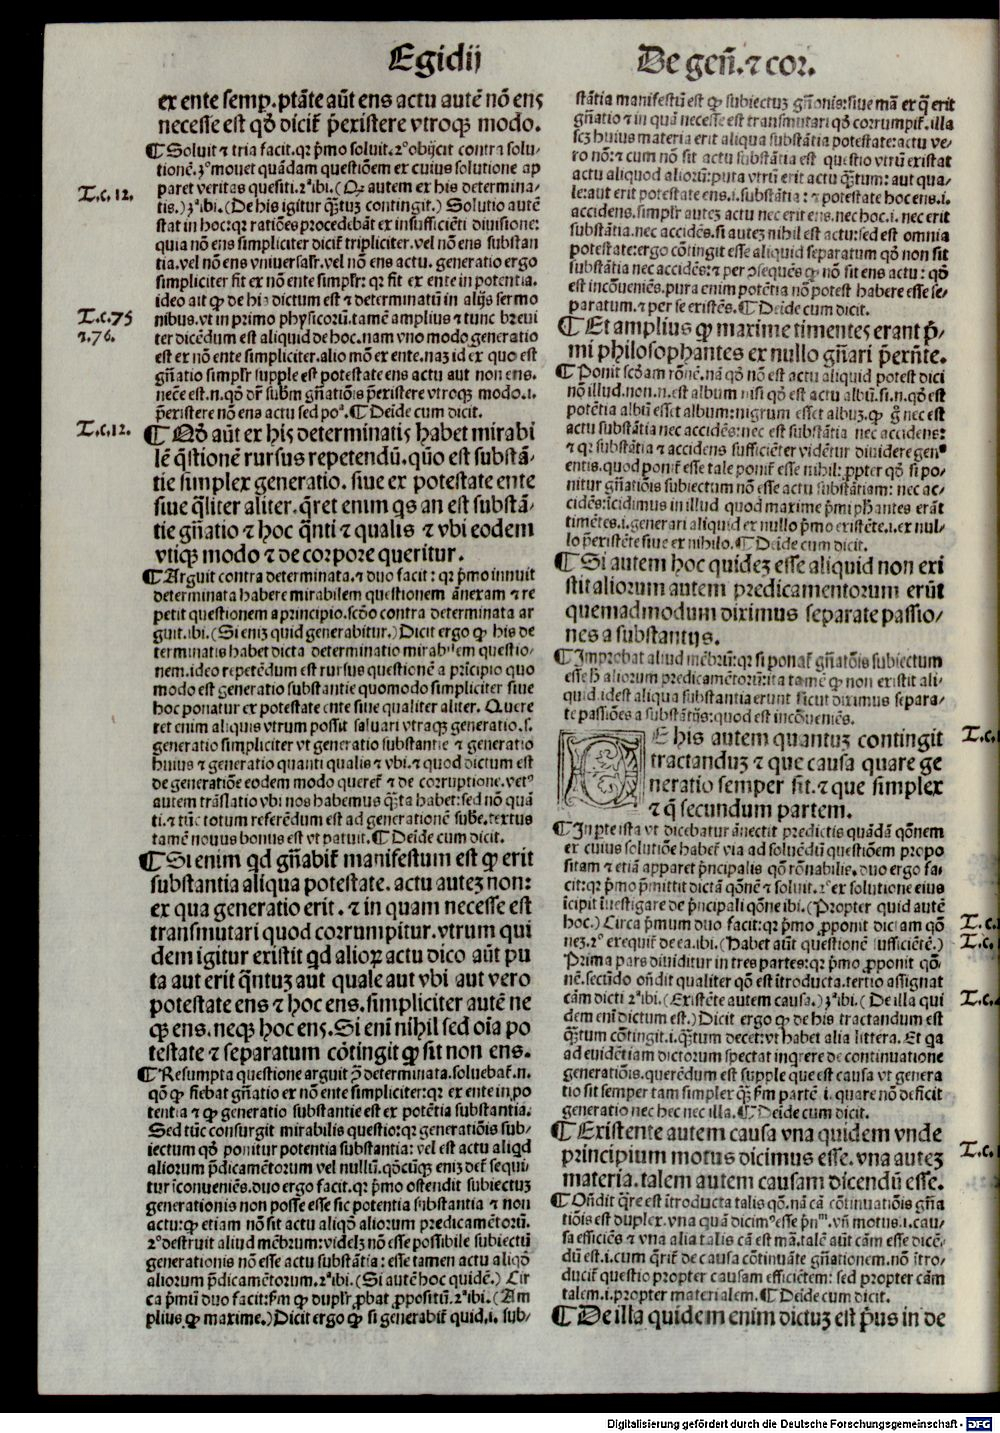 Egidij
De gen̄. ⁊ cor.
ex ente semp̲. ptāte aūt ens actu autē nō ens
necesse est qd̄ dicit᷑ p̄existere vtroqꝫ modo.
¶ Soluit ⁊ tria facit. qꝛ p̄mo soluit. 2º obijcit contra solu⸗
tionē. 3º mouet quādam questiōem ex cuius solutione ap
paret veritas quesiti. 2ª ibi. (Qꝫ autem ex his determina⸗
tis.) 3ª ibi. (De his igitur qꝫtuꝫ contingit.) Solutio autē
stat in hoc: qꝛ ratiōes procedebāt ex insufficiēti diuisione:
quia nō ens simpliciter dicit᷑ tripliciter. vel nō ens substan
tia. vel nō ens vniuersalr̄. vel nō ens actu. generatio ergo
simpliciter fit ex nō ente simplr̄: qꝛ fit ex ente in potentia.
ideo ait ꝙ de his dictum est ⁊ determinatū in alijs sermo
nibus. vt in primo physicorū. tamē amplius ⁊ tunc breui
ter dicēdum est aliquid de hoc. nam vno modo generatio
est ex nō ente simpliciter. alio mō ex ente. naꝫ id ex quo est
gn̄atio simplr̄ supple est potestate ens actu aut non ens.
necē est. n. qd̄ dr̄ subm̄ gn̄atiōis p̄existere vtroqꝫ modo. i.
p̄existere nō ens actu sed poª. ¶ Deīde cum dicit.
T.c.12.
T.c.75
⁊.76.
T.c.12.
¶ Qd̄ aūt ex his determinatis habet mirabi
lē q̄stionē rursus repetendū. quō est substā⸗
tie simplex generatio. siue ex potestate ente
siue q̄liter aliter. q̄ret enim qs an est substā⸗
tie gn̄atio ⁊ hoc q̄nti ⁊ qualis ⁊ vbi eodem
vtiqꝫ modo ⁊ de corpore queritur.
¶ Arguit contra determinata. ⁊ duo facit: qꝛ p̄mo innuit
determinata habere mirabilem questionem ānexam ⁊ re
petit questionem a principio. scd̄o contra determinata ar
guit. ibi. (Si eniꝫ quid generabitur.) Dicit ergo ꝙ his de
terminatis habet dicta determinatio mirabilem questio⸗
nem. ideo repetēdum est rursus questionē a prīcipio quo
modo est generatio substantie quomodo simpliciter siue
hoc ponatur ex potestate ente siue qualiter aliter. Quere
ret enim aliquis vtrum possit saluari vtraqꝫ generatio. s.
generatio simpliciter vt generatio substantie ⁊ generatio
huius ⁊ generatio quanti qualis ⁊ vbi. ⁊ quod dictum est
de generatiōe eodem modo queret᷑ ⁊ de corruptione. vetꝰ
autem trāslatio vbi nos habemus qꝫta habet: sed nō quā
ti. ⁊ tūc totum referēdum est ad generationē sube. textus
tamē nouus bonus est vt patuit. ¶ Deīde cum dicit.
¶ Si enim qd gn̄abit᷑ manifestum est ꝙ erit
substantia aliqua potestate. actu auteꝫ non:
ex qua generatio erit. ⁊ in quam necesse est
transmutari quod corrumpitur. vtrum qui
dem igitur existit qd alioꝝ actu dico aūt pu
ta aut erit q̄ntuꝫ aut quale aut vbi aut vero
potestate ens ⁊ hoc ens. simpliciter autē ne
qꝫ ens. neqꝫ hoc ens. Si enī nihil sed oīa po
testate ⁊ separatum cōtingit ꝙ sit non ens.
¶ Resumpta questione arguit ꝯ̄ determinata. soluebat᷑. n.
qō ꝙ fiebat gn̄atio ex nō ente simpliciter: qꝛ ex ente in po
tentia ⁊ ꝙ generatio substantie est ex potētia substantia.
Sed tūc consurgit mirabilis questio: qꝛ generatiōis sub⸗
iectum qd̄ ponitur potentia substantia: vel est actu aliqd
aliorum p̄dicamētorum vel nullū. qd̄cūqꝫ eniꝫ det᷑ sequi
tur īconueniēs. duo ergo facit. qꝛ p̄mo ostendit subiectuꝫ
generationis non posse esse sic potentia substantia ⁊ non
actu: ꝙ etiam nō sit actu aliqd̄ aliorum predicamētorū.
2º destruit aliud mēbrum: videlꝫ nō esse possibile subiectū
generationis nō esse actu substātia: esse tamen actu aliqd̄
aliorum p̄dicamētorum. 2ª ibi. (Si autē hoc quidē.) Cir
ca p̄mū duo facit: ẜm ꝙ duplr̄ ꝓbat ꝓpositū. 2ª ibi. (Am
plius. ꝙ maxime.) Dicit ergo ꝙ si generabit᷑ quid. i. sub⸗
stātia manifestū est ꝙ subiectuꝫ gn̄onis: siue mā ex q̄ erit
gn̄atio ⁊ in quā necesse est transmutari qd̄ corrumpit᷑. illa
scꝫ huius materia erit aliqua substātia potestate: actu ve⸗
ro nō: ⁊ cum nō sit actu substātia est questio vtrū existat
actu aliquod aliorū: puta vtrū erit actu qꝫtum: aut qua⸗
le: aut erit potestate ens. i. substātia: ⁊ potestate hoc ens. i.
accidens. simplr̄ auteꝫ actu nec erit ens. nec hoc. i. nec erit
substātia. nec accidēs. si auteꝫ nihil est actu: sed est omnia
potestate: ergo cōtingit esse aliquid separatum qd̄ non sit
substātia nec accidēs: ⁊ per ꝯsequēs ꝙ nō sit ens actu: qd̄
est incōueniēs. pura enim potētia nō potest habere esse se⸗
paratum. ⁊ per se existēs. ¶ Deīde cum dicit.
¶ Et amplius ꝙ maxime timentes erant p̄⸗
mi philosophantes ex nullo gn̄ari p̄exn̄te.
¶ Ponit scd̄am rōnē. nā qd̄ nō est actu aliquid potest dici
nō illud. non. n. est album nisi qd̄ est actu albū. si. n. qd̄ est
potētia albū esset album: nigrum esset albuꝫ. ꝙ ḡ nec est
actu substātia nec accidēs: nec est substātia nec accidens:
⁊ qꝛ substātia ⁊ accidens sufficiēter vidētur diuidere genꝰ
entis. quod ponit᷑ esse tale ponit᷑ esse nihil: ꝓpter qd̄ si po⸗
nitur gn̄atiōis subiectum nō esse actu substātiam: nec ac⸗
cidēs: īcidimus in illud quod maxime p̄mi phantes erāt
timētes. i. generari aliquid ex nullo p̄mo existēte. i. ex nul⸗
lo p̄existēte siue ex nihilo. ¶ Deīde cum dicit.
¶ Si autem hoc quideꝫ esse aliquid non exi
stit aliorum autem predicamentorum erūt
quemadmodum diximus separate passio⸗
nes a substantijs.
¶ Improbat aliud mēbrū: qꝛ si ponat᷑ gn̄atōis subiectum
esse ꝗ̄ aliorum predicamētorū: ita tamē ꝙ non existit ali⸗
quid. idest aliqua substantia erunt sicut diximus separa⸗
te passiōes a substātijs: quod est incōueniēs.
DE his autem quantuꝫ contingit
tractanduꝫ ⁊ que causa quare ge
neratio semper sit. ⁊ que simplex
⁊ q̄ secundum partem.
¶ In pte ista vt dicebatur ānectit predictis quādā qōnem
ex cuius solutiōe habet᷑ via ad soluēdū questiōem propo
sitam ⁊ etiā apparet p̄ncipalis qō rōnabilis. duo ergo fa⸗
cit: qꝛ p̄mo p̄mittit dictā qōnē ⁊ soluit. 2º ex solutione eius
īcipit īuestigare de p̄ncipali qōne ibi. (Propter quid autē
hoc.) Circa p̄mum duo facit: qꝛ p̄mo ꝓponit dictam qō
neꝫ. 2º exequit᷑ de ea. ibi. (Habet aūt questionē sufficiētē.)
Prima pars diuiditur in tres partes: qꝛ p̄mo ꝓponit qō⸗
nē. secūdo on̄dit qualiter qō est ītroducta. tertio assignat
cām dicti 2ª ibi. (Existēte autem causa.) 3ª ibi. (De illa qui
dem enī dictum est.) Dicit ergo ꝙ de his tractandum est
qꝫtum cōtingit. i. qꝫtum decet: vt habet alia littera. Et qa
ad euidētiam dictorum spectat inqrere de continuatione
generatiōis. querēdum est supple que est causa vt genera
tio sit semper tam simpler qꝫ ẜm partē ⁊. quare nō deficit
generatio nec hec nec illa. ¶ Deīde cum dicit.
¶ Existente autem causa vna quidem vnde
principium motus dicimus esse. vna auteꝫ
materia. talem autem causam dicendū esse.
¶ On̄dit q̄re est ītroducta talis qō. nā cā cōtinuatiōis gn̄a
tiōis est duplex. vna quā dicimꝰ esse p̄nᵐ. vn̄ motus. i. cau⸗
sa efficiēs ⁊ vna alia talis cā est mā. talē aūt cām esse dicē⸗
dū est. i. cum q̄rit᷑ de causa cōtinuāte gn̄ationem. nō ītro⸗
ducit᷑ questio propter causam efficiētem: sed propter cām
talem. i. propter materialem. ¶ Deīde cum dicit.
¶ De illa quidem enim dictuꝫ est p̄us in de
T.c.
T.c.
T.c.
T.c.
T.c.
Digitalisierung gefördert durch die Deutsche Forschungsgemeinschaft - DFG